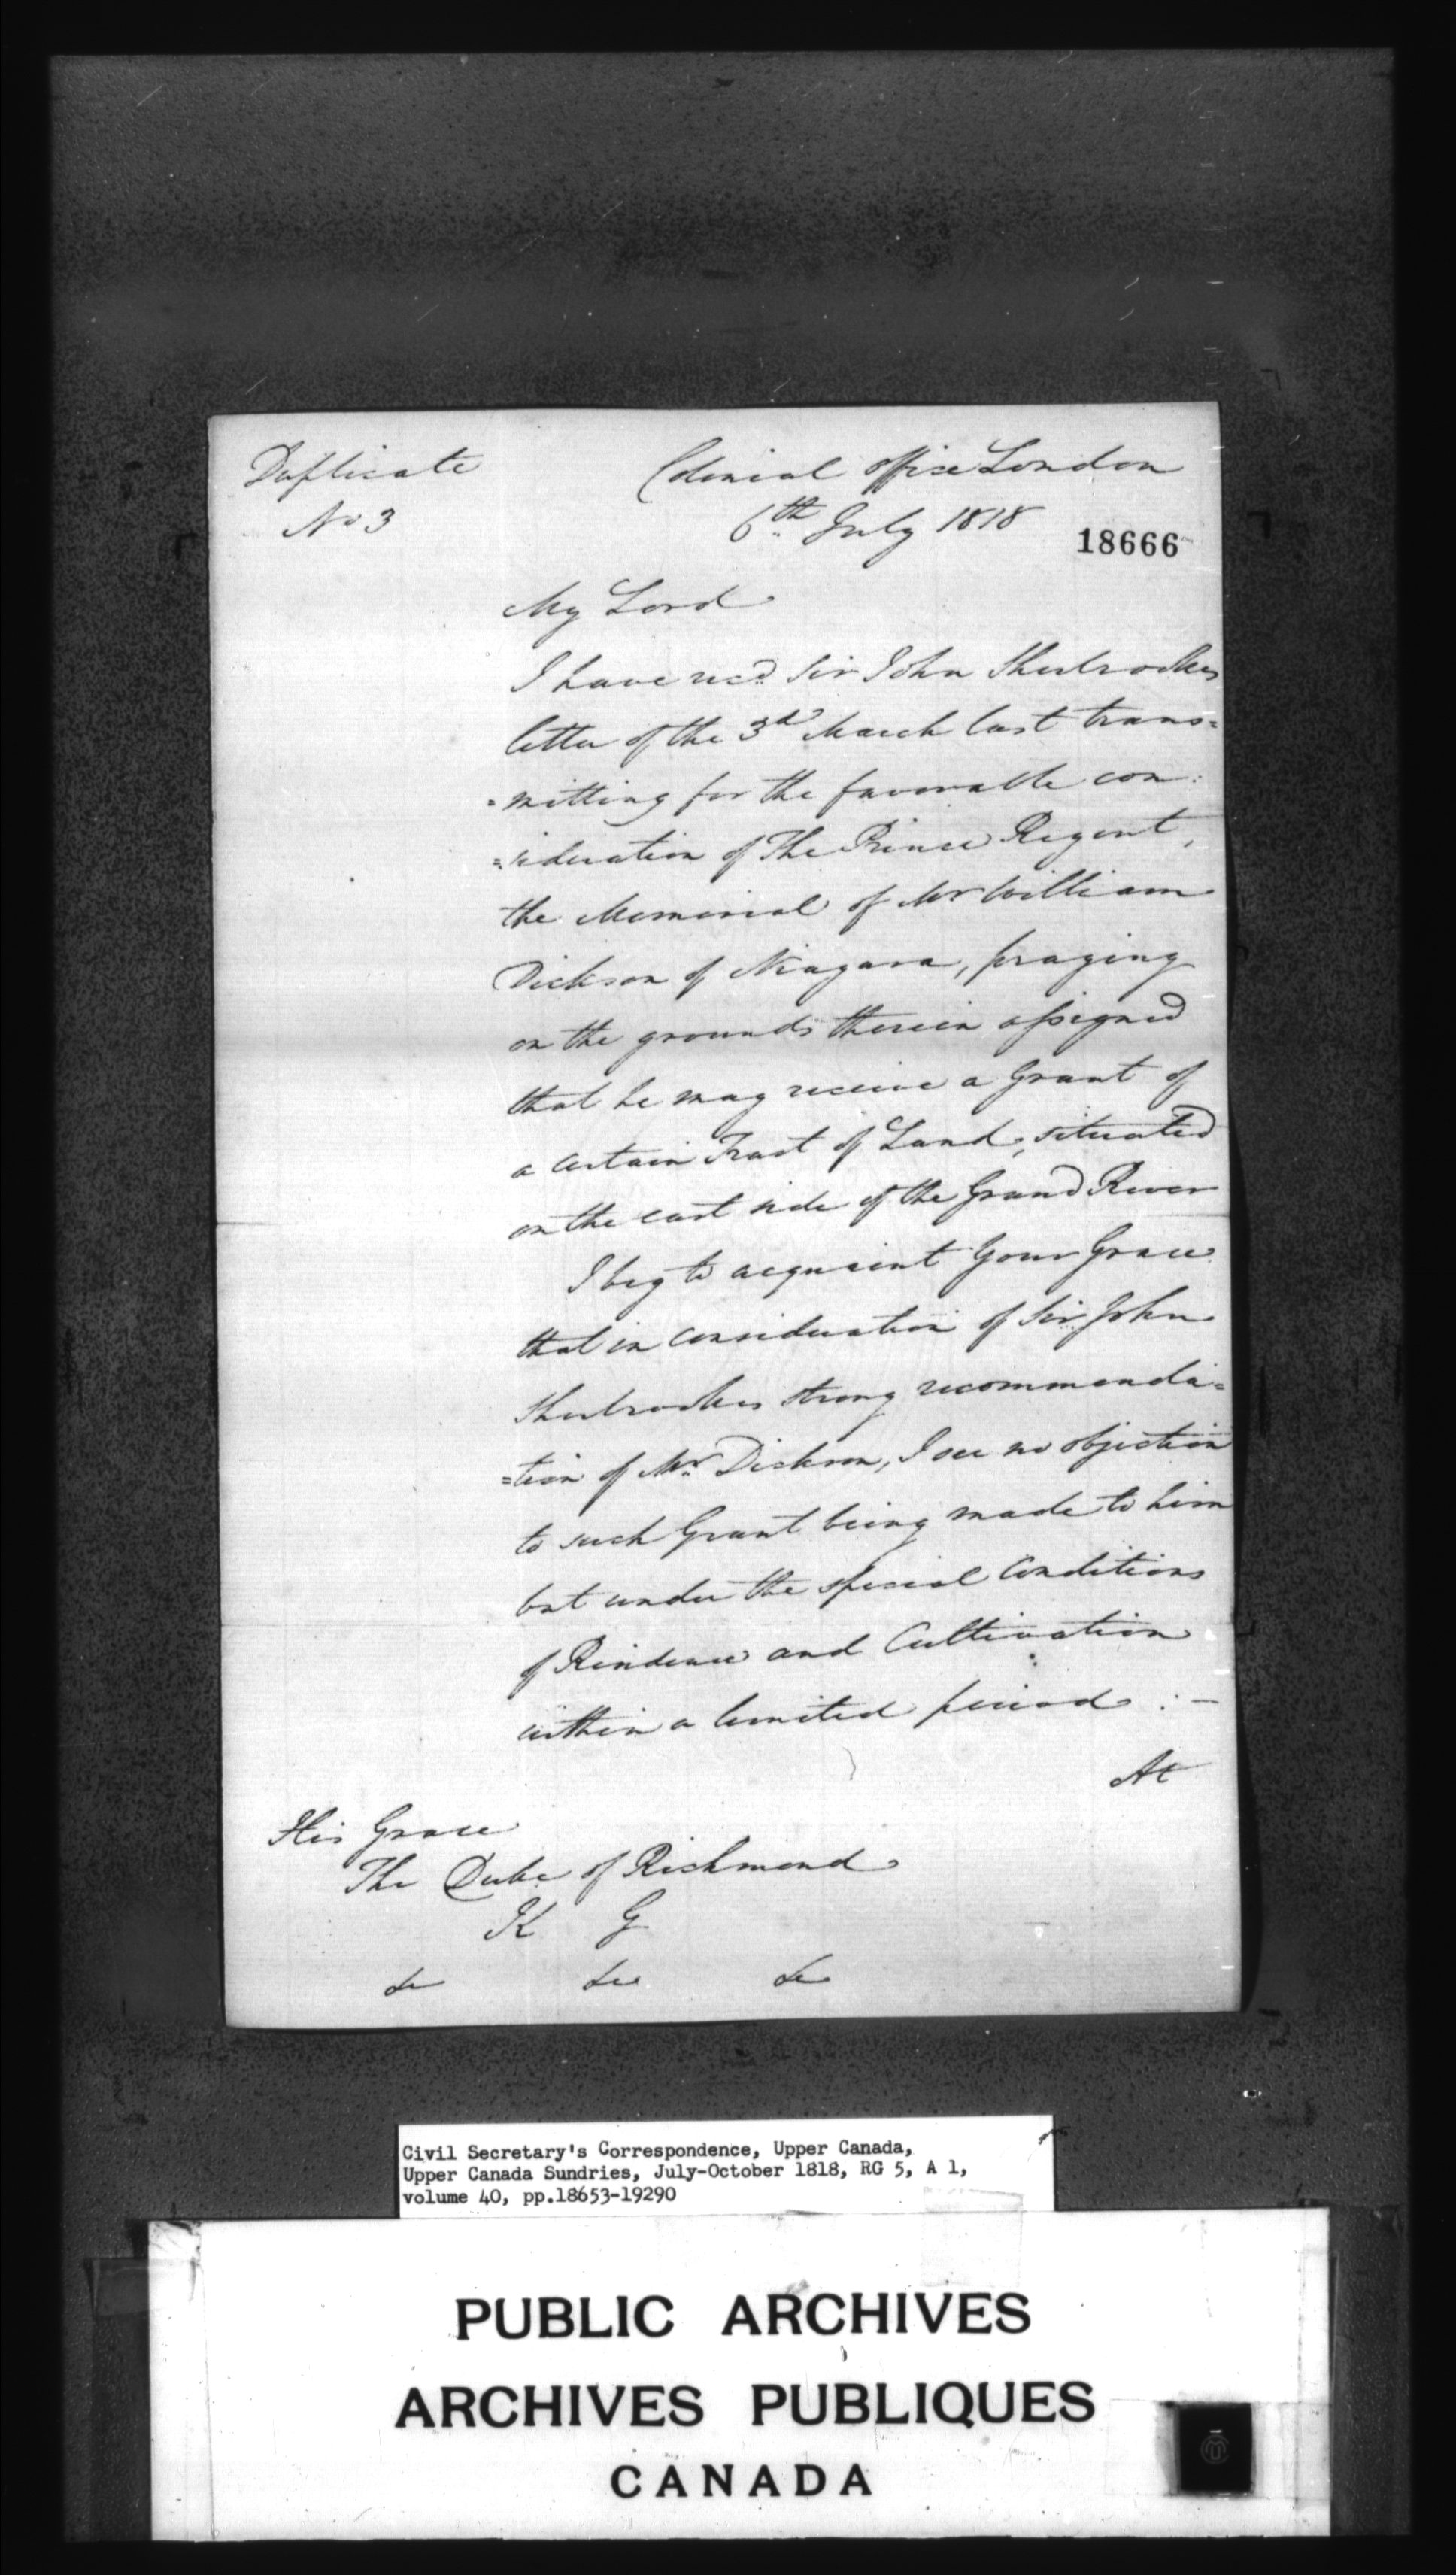 Duplicate
No 3
Colonial office London
6th July 1818
18666
My Lord
I have recd Sir John Sherbrookes
letter of the 3d March last trans=
=mitting for the favorable con:
=sideration of The Prince Regent,
the Memorial of Mr William
Dickson of Niagara, praying
on the grounds therein assigned
that he may receive a Grant of
a certain Tract of Land, situated
on the east side of the Grand River
I beg to acquaint Your Grace
that in consideration of Sir John
Sherbrookes strong recommenda=
=tion of Mr Dickson, I see no objection
to such Grant being made to him
but under the special Conditions
of Residence and Cultivation
within a limited period :-
At
His Grace
The Duke of Richmond
K G
&c &c &c
Civil Secretary's Correspondence, Upper Canada,
Upper Canada Sundries, July-October 1818, RG 5, A 1,
volume 40, pp.18653-19290
PUBLIC ARCHIVES
ARCHIVES PUBLIQUES
CANADA